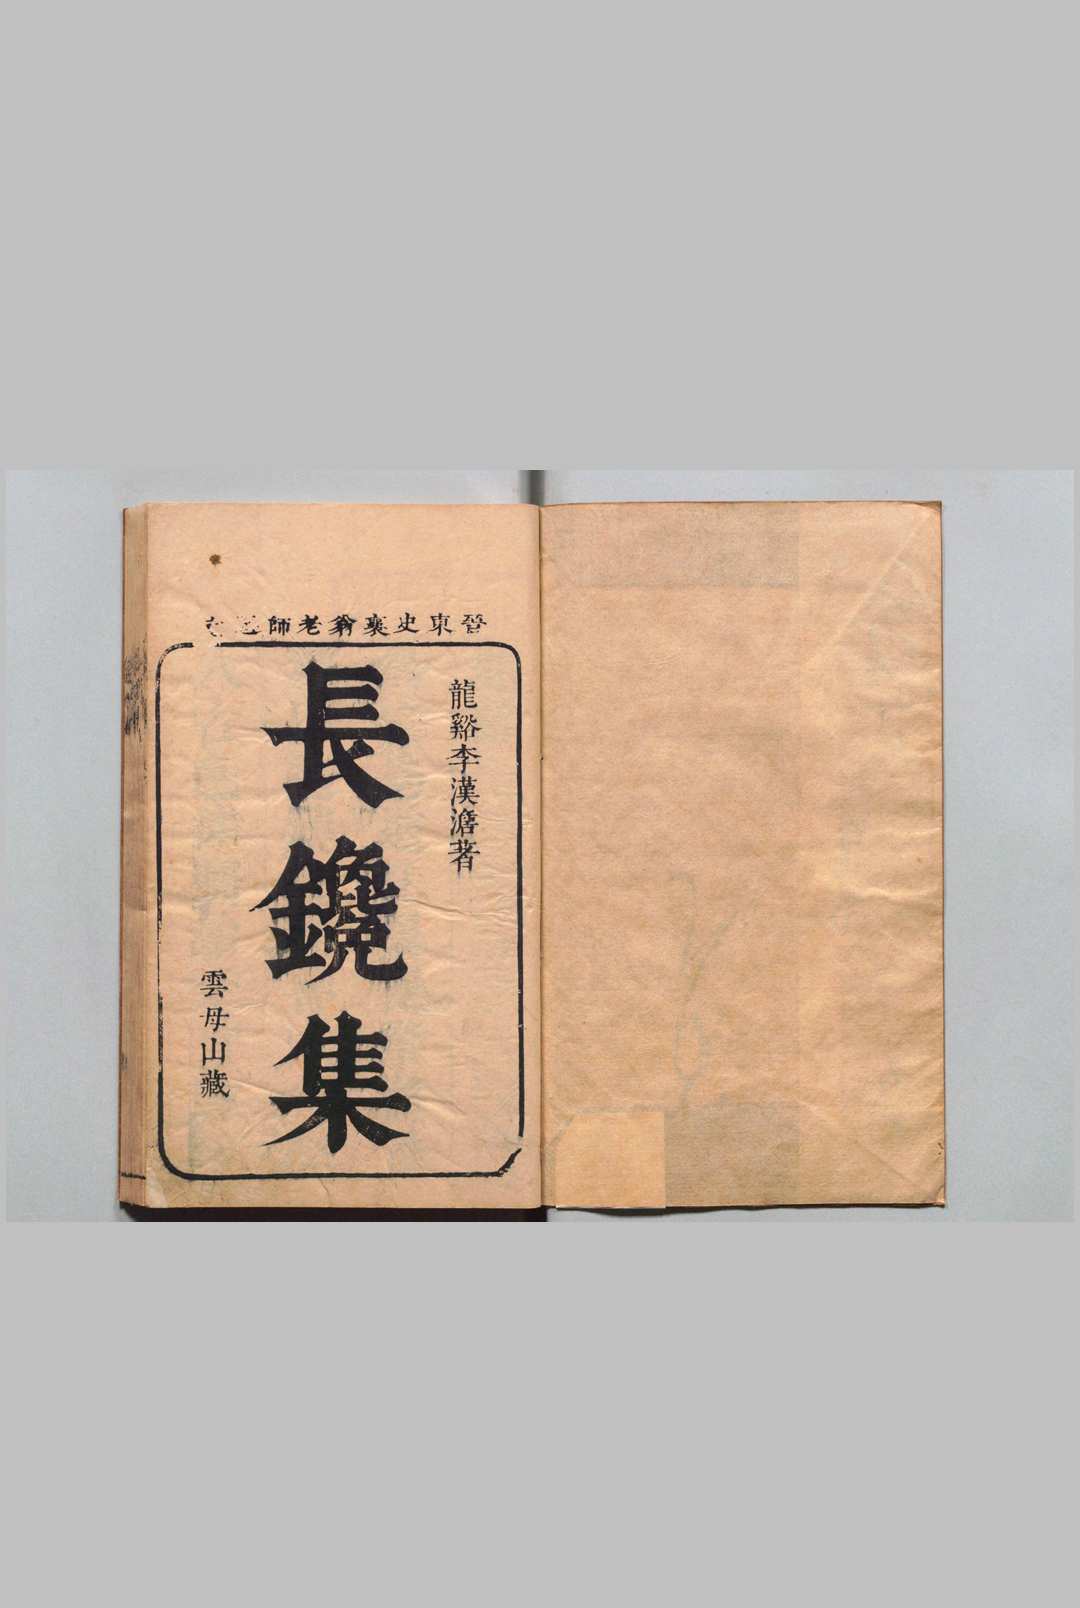 晉東史襄翁老師
龍谿李漢澹著
長鑱集
雲母山藏